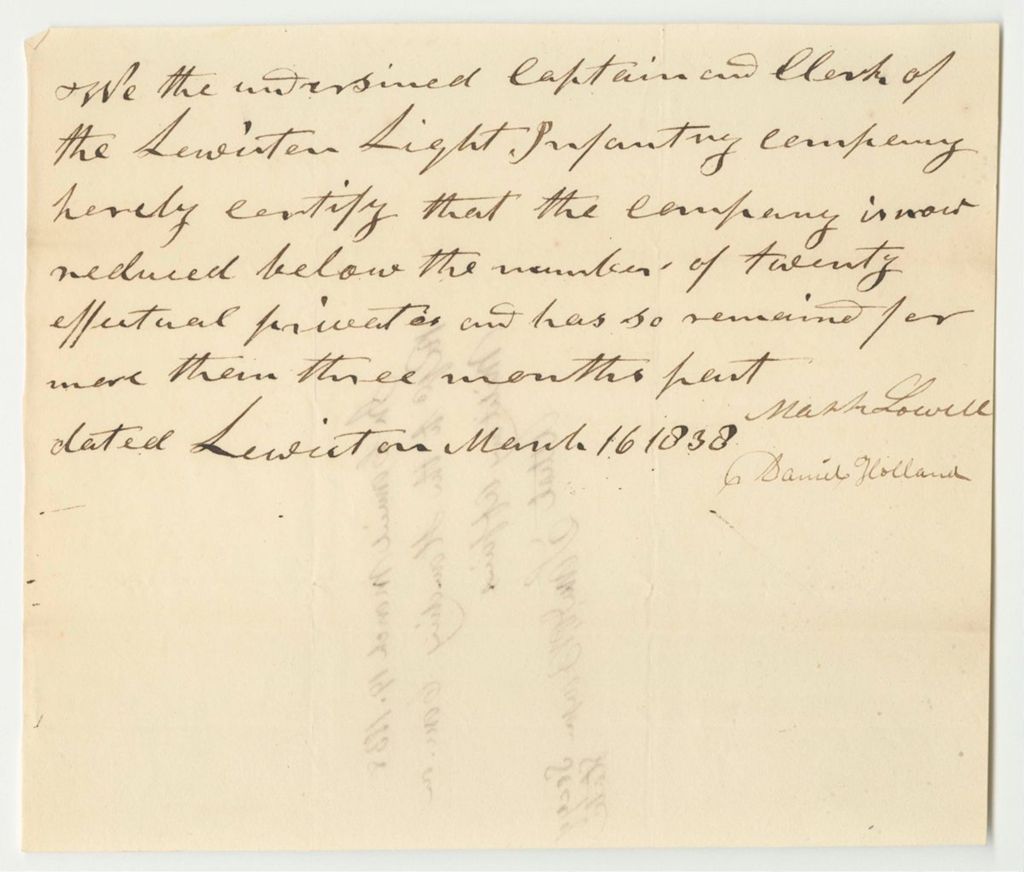 We the undersined Captain and Clerk of
the Lewiston Light Infantry company
hereby certify that the company is now
reduced below the number of twenty
effectual privates and has so remained for
more then three months past
Mark Lowell
dated Lewiston March 16 1838
Daniel Holland